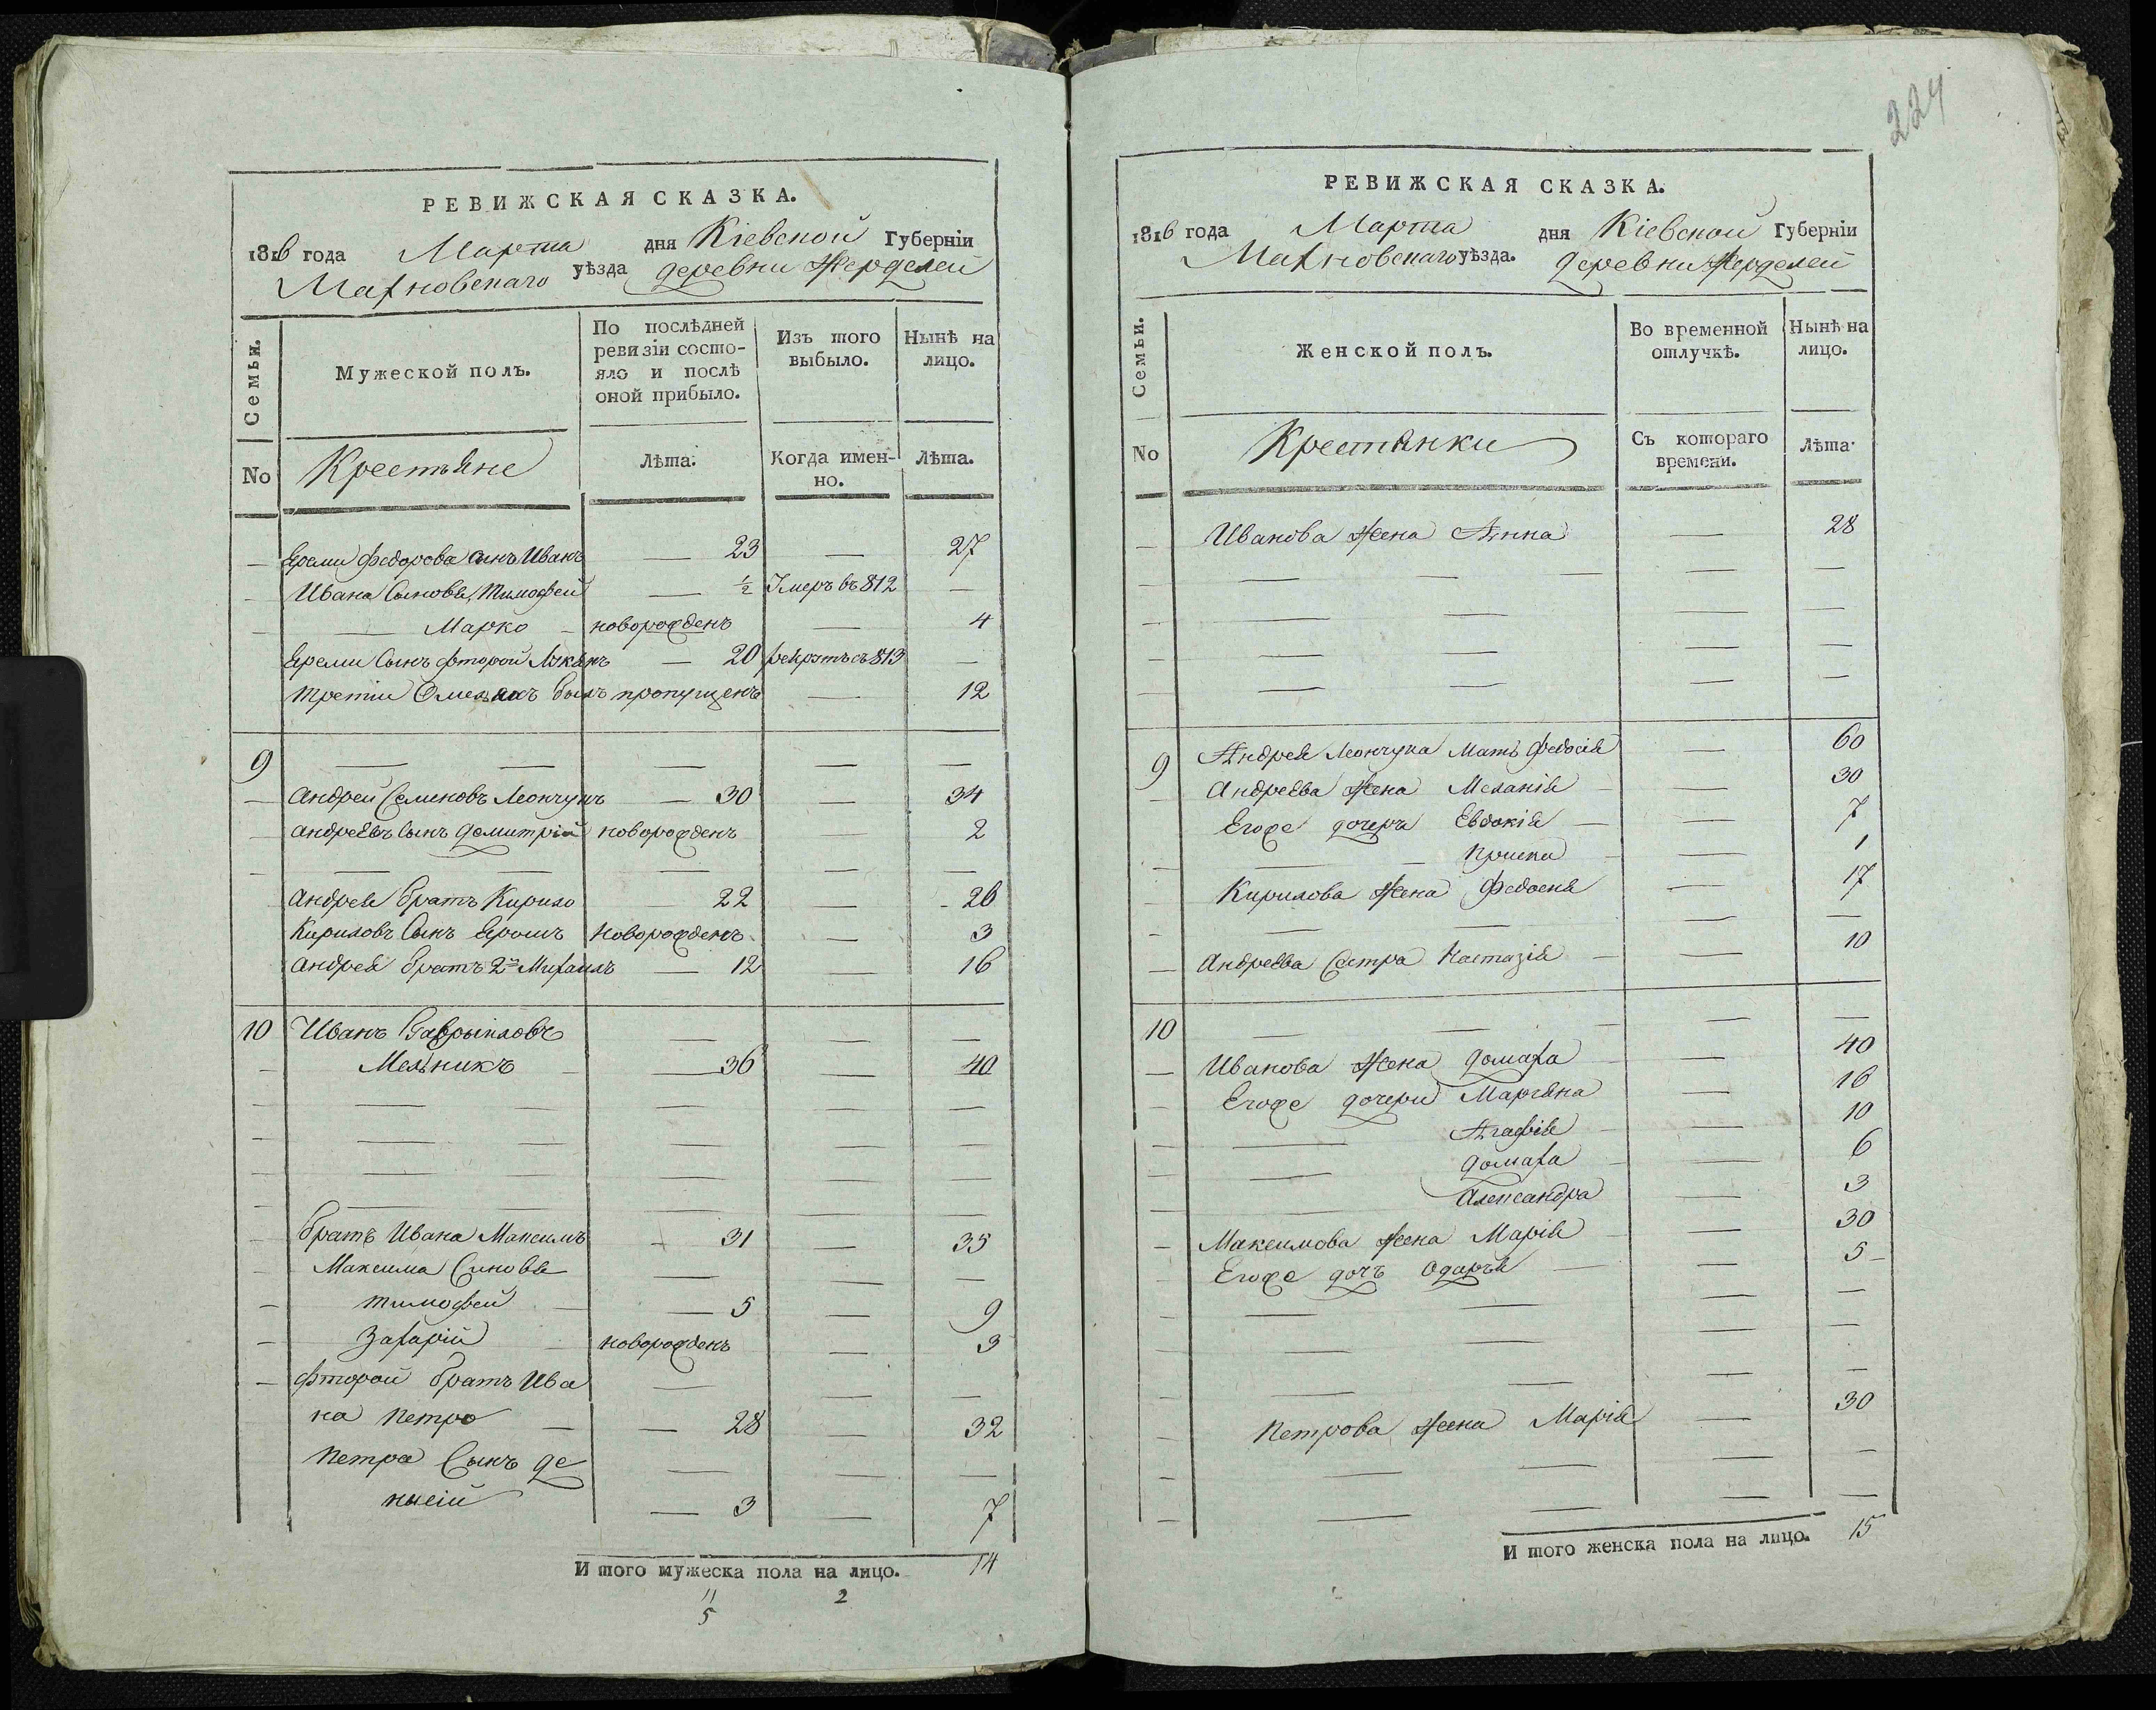 РЕВИЖСКАЯ СКАЗКА.
1816 года Марта дня Кіевской Губерніи
Махновскаго уѣзда деревни Жерделей
Семьи. Мужеской полъ. По послѣдней ревизіи состояло и послѣ оной прибыло. Изъ того выбыло. Нынѣ на лицо.
No Крестьяне Лѣта. Когда именно. Лѣта.
— Ереми Федорова сынъ Иванъ — 23 — 27
— Ивана Сыновья, Тимофей — 1/2 Умеръ въ 812 —
— — Марко — новорожденъ — 4
Ереми Сынъ фторой Лукянъ — 20 рекрутъ съ 813 —
третіи Омельянъ былъ пропущенъ — 12
9 — — — — —
— Андрей Семеновъ Леончукъ — 30 — 34
— Андреевъ Сынъ Домитрій новорожденъ — 2
— — — — — —
Андрея братъ Кирило — 22 — 26
Кириловъ Сынъ Яромъ новорожденъ — 3
Андрея братъ 2й Михаилъ — 12 — 16
10 Иванъ Гаврыиловъ — — —
— Мельникъ — — 36 — 40
— — — — — —
— — — — — —
— — — — — —
— — — — — —
— братъ Ивана Максимъ — 31 — 35
— Максима Синовья — — —
— тимофей — — 5 — 9
— Захарій — новорожденъ — 3
— фторой братъ Ива — — —
на Петро — — 28 — 32
Петра Сынъ Де — — —
нисій — 3 — 7
И того мужеска пола на лицо. 14
11 2
5
224
РЕВИЖСКАЯ СКАЗКА.
1816 года Марта дня Кіевской Губерніи
Махновскаго уѣзда. деревни Жерделей
Семьи. Женской полъ. Во временной отлучкѣ. Нынѣ на лицо.
No Крестянки Съ котораго времени. Лѣта.
— Иванова Жена Анна — 28
— — — — — —
— — — — —
— — — — —
— — — — —
9 Андрея Леончука Мать Федосія — 60
— Андреева Жена Меланія — — 30
Егоже дочера Евдокія — — 7
— — — Приска — — 1
— Кирилова Жена Федоска — 17
— — — — —
— Андреева Сестра Настазія — — 10
10 — — — — —
— Иванова Жена Домаха — — 40
— Егоже дочери Маряна — 16
— — Агафія — — 10
— — Домаха — — 6
— — Александра — 3
— Максимова Жена Марія — — 30
— Егоже дочъ Одарья — — 5 —
— — — — —
— — — — —
— — — —
— Петрова Жена Марія — 30
— — — — —
— — — — —
И того женска пола на лицо. 15